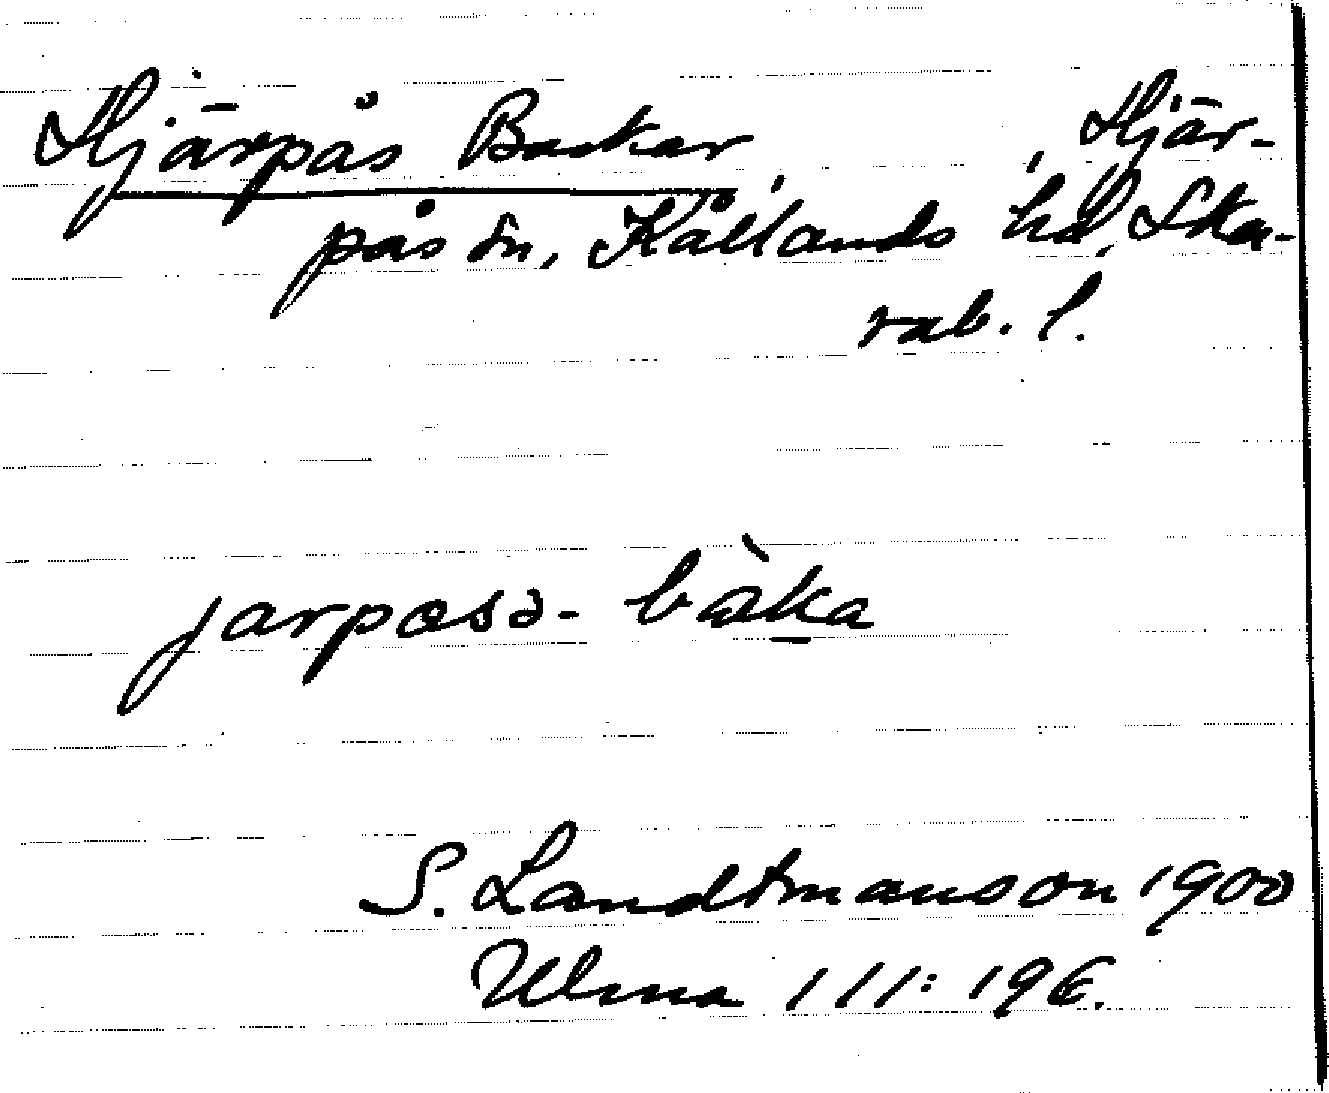 Hjärpås Backar, Hjär-
pås sn, Kållands hd, Ska-
rab. l.
jarpasə- bàka
S. Landtmanson 1900
Ulma 111: 196.